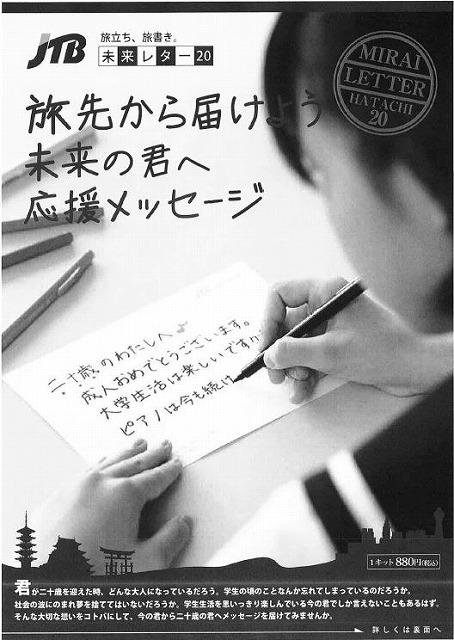 JTB
旅立ち、旅書き。
未来レター20
MIRAI
LETTER
HATACHI
20
旅先から届けよう
未来の君へ
応援メッセージ
二十歳のわたしへ
成人おめでとうございます。
大学生活は楽しいですか
ピアノは今も続け
1キット880円(税込)
君が二十歳を迎えた時、どんな大人になっているだろう。学生の頃のことなんか忘れてしまっているのだろうか。
社会の波にのまれ夢を捨ててはいないだろうか。学生生活を思いっきり楽しんでいる今の君でしか言えないこともあるはず。
そんな大切な想いをコトバにして、今の君から二十歳の君へメッセージを届けてみませんか。
詳しくは裏面へ